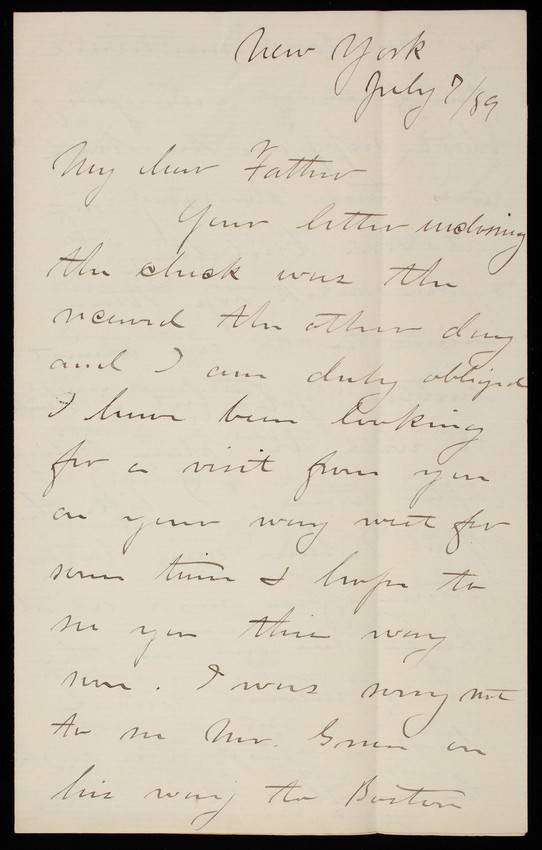 New York
July 7/89
My dear Father
Your letter inclosing
the check was the
received the other day
and I am duly obliged
I have been looking
for a visit from you
on your way west for
some time & hope to
see you this way
soon. I was sorry not
to see Mr. Green on
his way to Boston